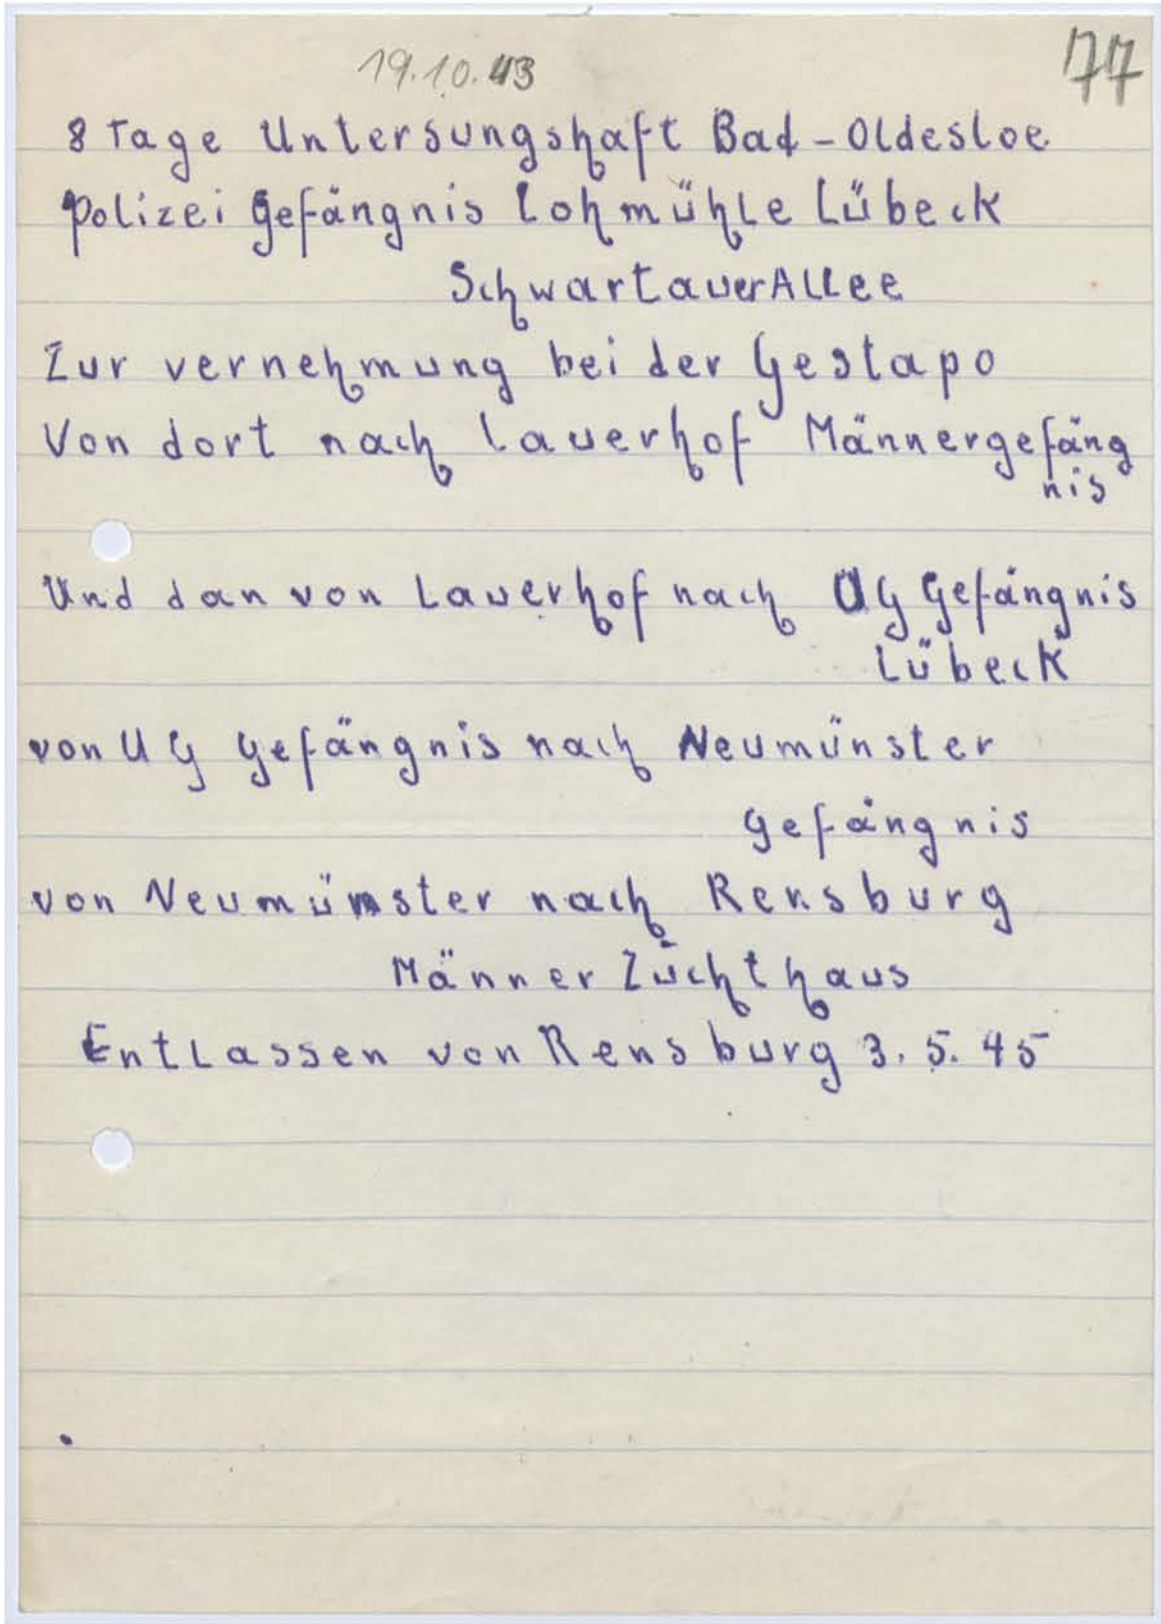 19.10.43
77
8 Tage Untersungshaft Bad-Oldesloe
Polizei Gefängnis Lohmühle Lübeck
Schwartauer Allee
Zur vernehmung bei der Gestapo
Von dort nach Lauerhof Männergefäng
nis
Und dan von Lauerhof nach UG Gefängnis
Lübeck
von UG Gefängnis nach Neumünster
Gefängnis
von Neumünster nach Rensburg
Männer Zuchthaus
Entlassen von Rensburg 3.5.45